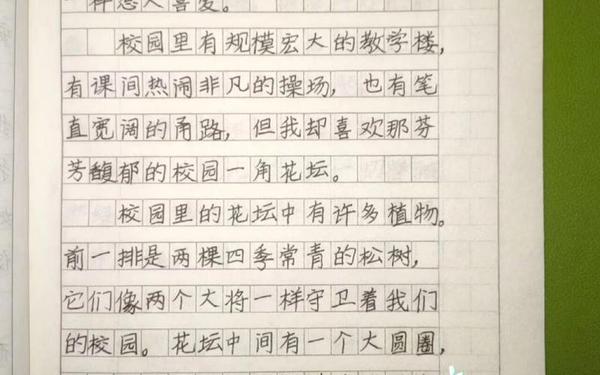 样惹人喜爱。
校园里有规模宏大的教学楼,
有课间热闹非凡的操场,也有笔
直宽阔的甬路,但我却喜欢那芬
芳馥郁的校园一角花坛。
校园里的花坛中有许多植物。
前一排是两棵四季常青的松树,
它们像两个大将一样守卫着我们
的校园。花坛中间有一个大圆圈,